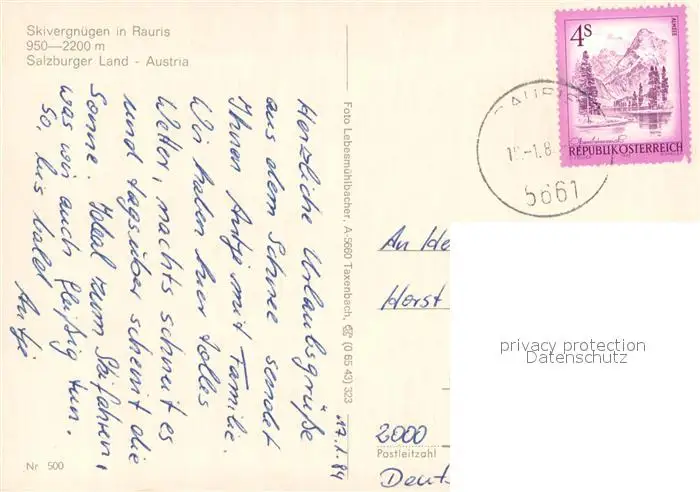 Skivergnügen in Rauris
950—2200 m
Salzburger Land - Austria
17.1.84
Herzliche Urlaubsgrüße
aus dem Schnee sendet
Ihnen Antje mit Familie.
Wir haben hier tolles
Wetter, nachts schneit es
und tagsüber scheint die
Sonne. Ideal zum Skifahren,
was wir auch fleißig tun.
So, bis bald
Antje
Nr 500
Foto Lebesmühlbacher, A-5660 Taxenbach, ☎ (0 65 43) 323
4S
ALMSEE
REPUBLIK ÖSTERREICH
5661
An
Horst
2000
Postleitzahl
privacy protection
Datenschutz